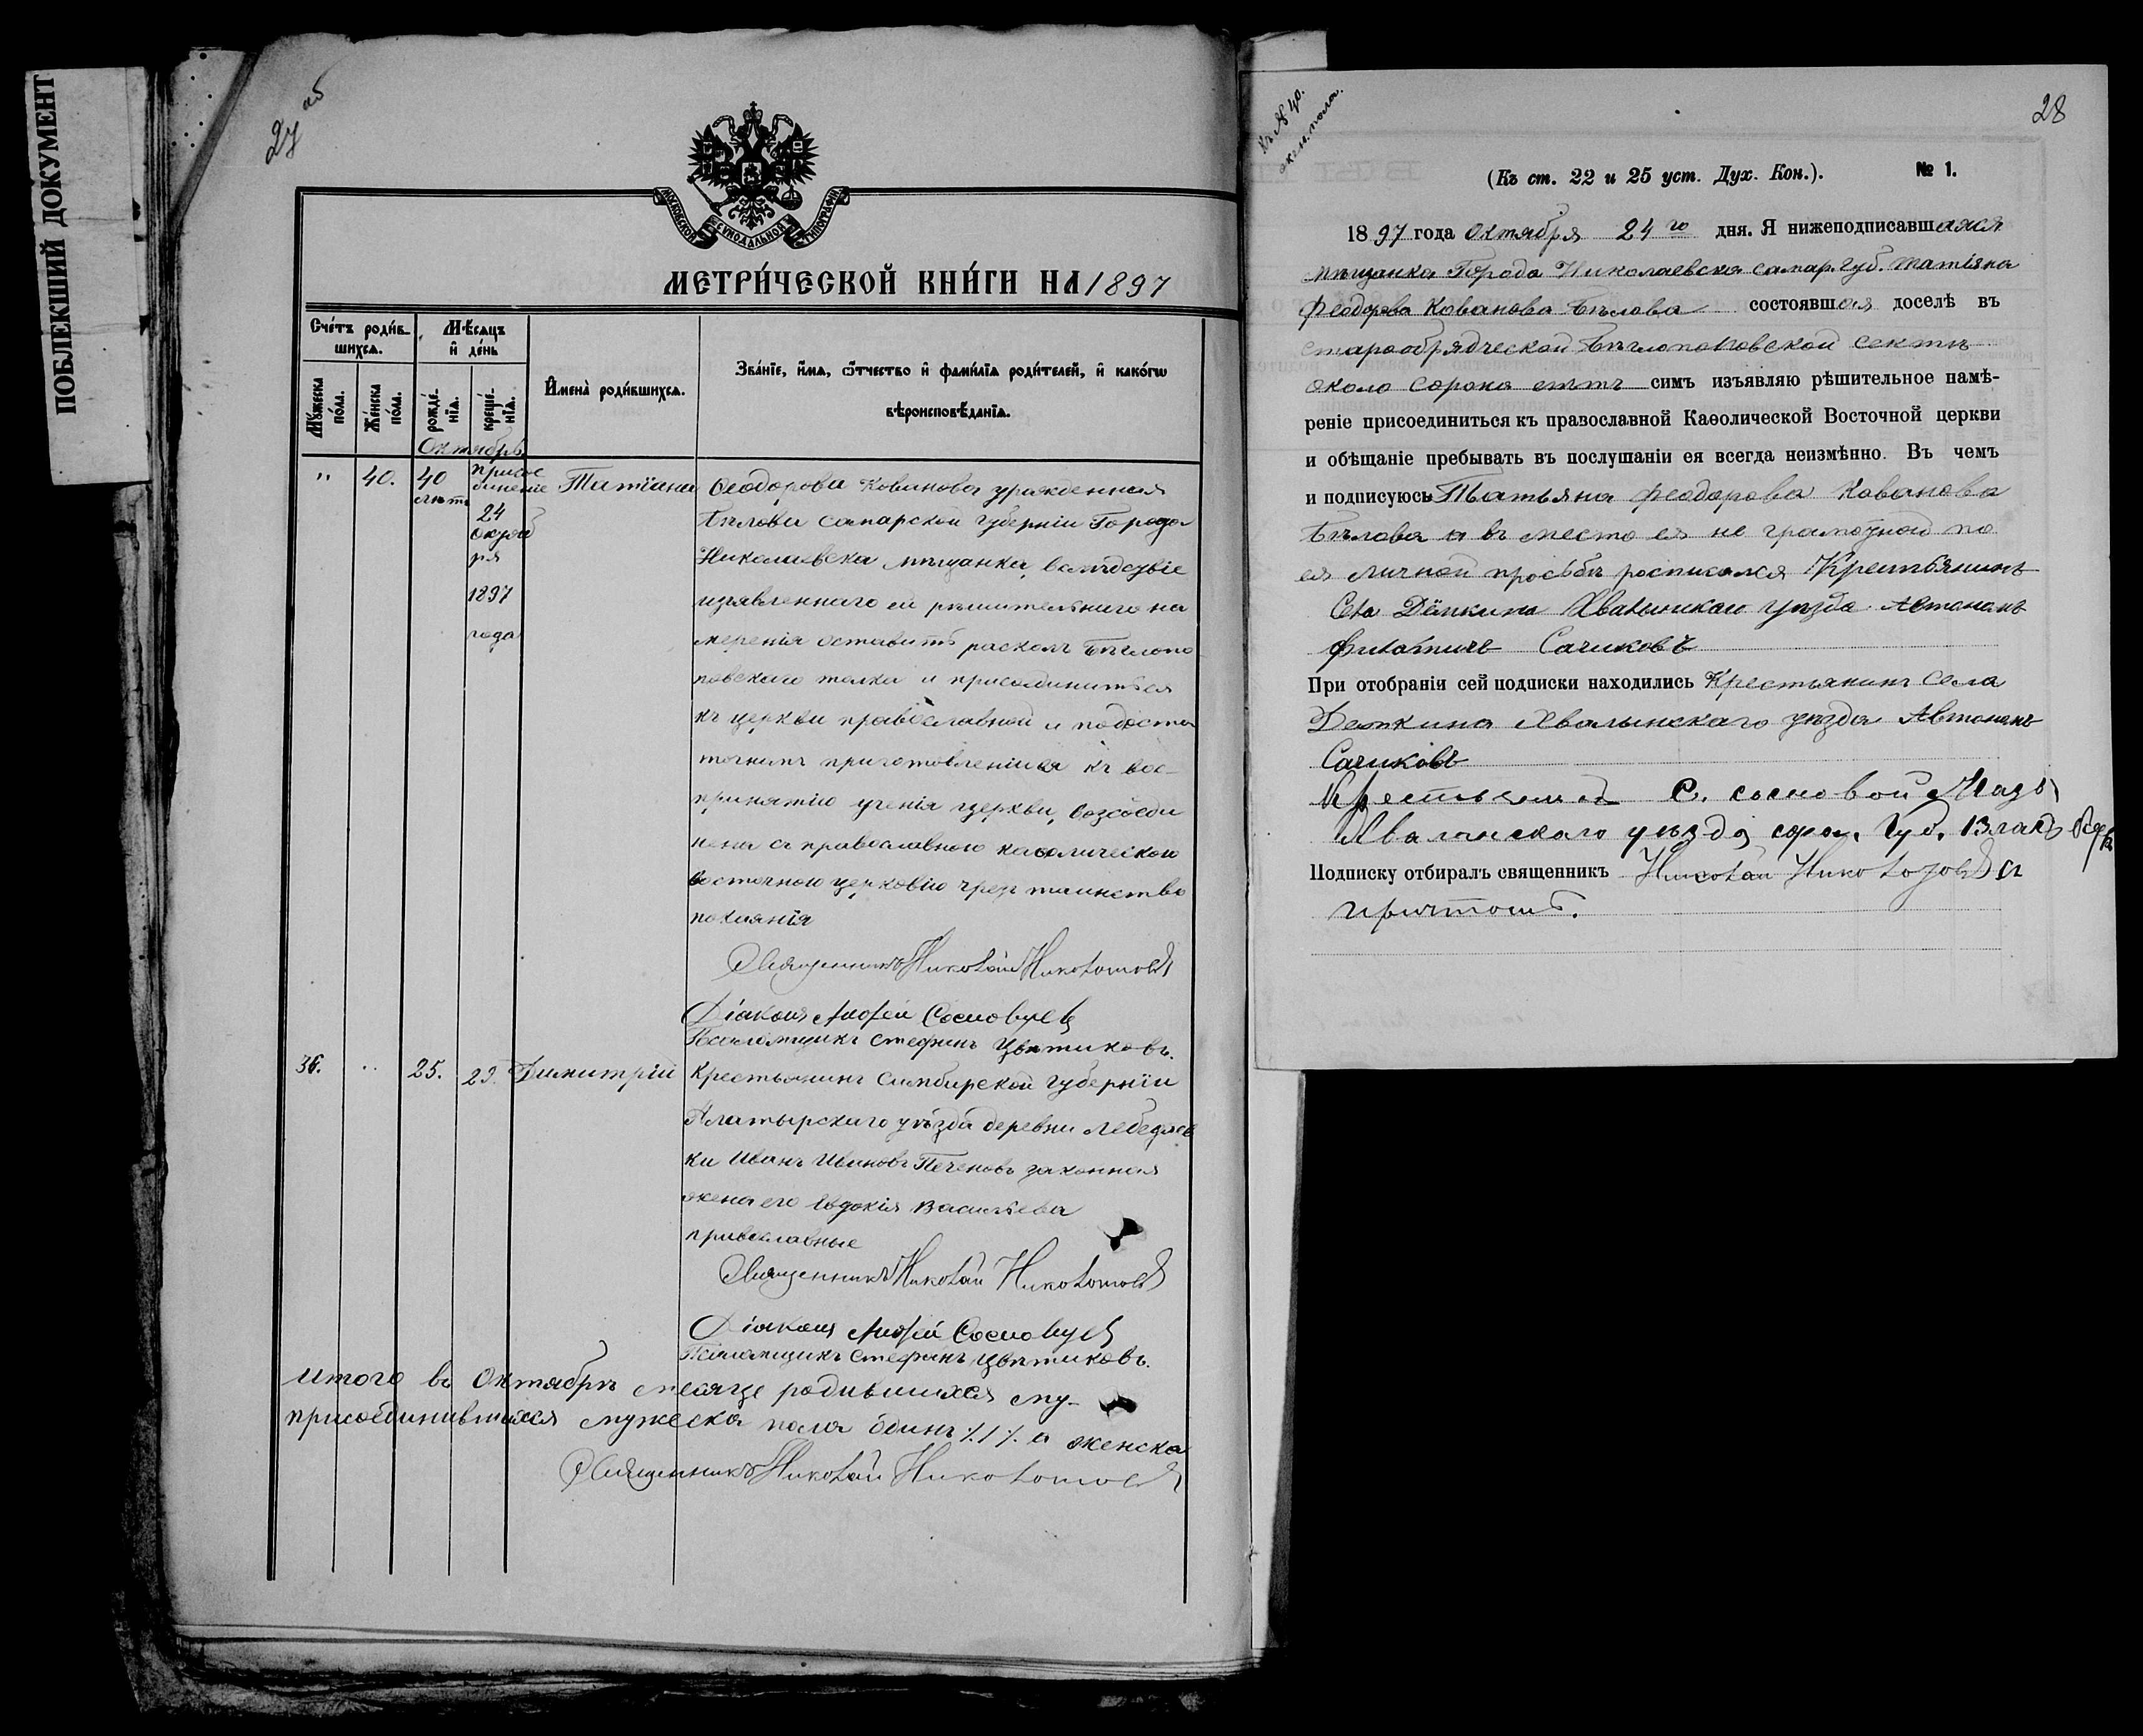 ПОБЛЕКШИЙ ДОКУМЕНТ
27 об
МОСКОВСКОЙ СѴНОДАЛЬНОЙ ТИПОГРАФІИ
МЕТРИ́ЧЕСКОЙ КНИ́ГИ НА 1897
Сче́тъ роди́вшихсѧ.
Мѣ́сѧцъ и҆ де́нь
Мꙋ́жеска по́ла.
Же́нска по́ла.
рожде́нїѧ.
креще́нїѧ.
И҆мена̀ роди́вшихсѧ.
Зва́нїе, и҆́мѧ, ѻ҆́тчество и҆ фами́лїѧ роди́телей, и҆ како́гѡ вѣроисповѣ́данїѧ.
Октябрь
" 40. 40 лѣтъ
присоединеніе 24 октября 1897 года
Татіана
Ѳеодорова Кованова урожденная
Бѣлова Самарской губерніи Города
Николаевска мѣщанка, вслѣдствіе
изъявленнаго ей рѣшительнаго на
меренія оставить расколъ бѣглопо
повскаго толка и присоединиться
къ церкви православной и по доста
точнымъ приготовленіи ея къ вос-
принятію ученія церкви, возсоеди
нена съ православною каѳолическою
восточною церковію чрезъ таинство
покаянія
Священникъ Николай
Діаконъ Сосновцев
Псаломщикъ Стефанъ Цвѣтиковъ.
36. " 25. 29. Димитрій
Крестьянинъ Симбирской губерніи
Алатырскаго уѣзда деревни Лебедяев
ки Иванъ Ивановъ Печеновъ законная
жена его Евдокія Васильева
православные
Священникъ Николай
Діаконъ Сосновцев
Псаломщикъ Стефанъ Цвѣтиковъ.
Итого въ Октябрѣ месяце родившихся му-
присоединившихся мужеска пола одинъ /.1/. а женска
Священникъ Николай
Къ № 40. женск. пола.
28
(Къ ст. 22 и 25 уст. Дух. Кон.). № 1.
1897 года Октября 24го дня. Я нижеподписавшаяся
мѣщанка Города Николаевска самар. губ. татіана
Феодорова Кованова Бѣлова состоявшая доселѣ въ
старообрядческой Бѣглопоповской сектѣ
около сорока летъ симъ изъявляю рѣшительное намѣ-
реніе присоединиться къ православной Каѳолической Восточной церкви
и обѣщаніе пребывать въ послушаніи ея всегда неизмѣнно. Въ чемъ
и подписуюсь Татьяна Феодорова Кованова
Бѣлова а въ место ея не грамотной по
ея личной просьбѣ росписался Крестьянинъ
Села Дёмкина Хвалынскаго уѣзда Автономъ
Филатичъ Сачиковъ
При отобраніи сей подписки находились Крестьянинъ села
Демкина Хвалынскаго уѣзда Автономъ
Сачиковъ
Крестьянинъ С. сосновой Мазы
Хвалынскаго уѣзда сара. губ.
Подписку отбиралъ священникъ Николай съ
причтомъ.